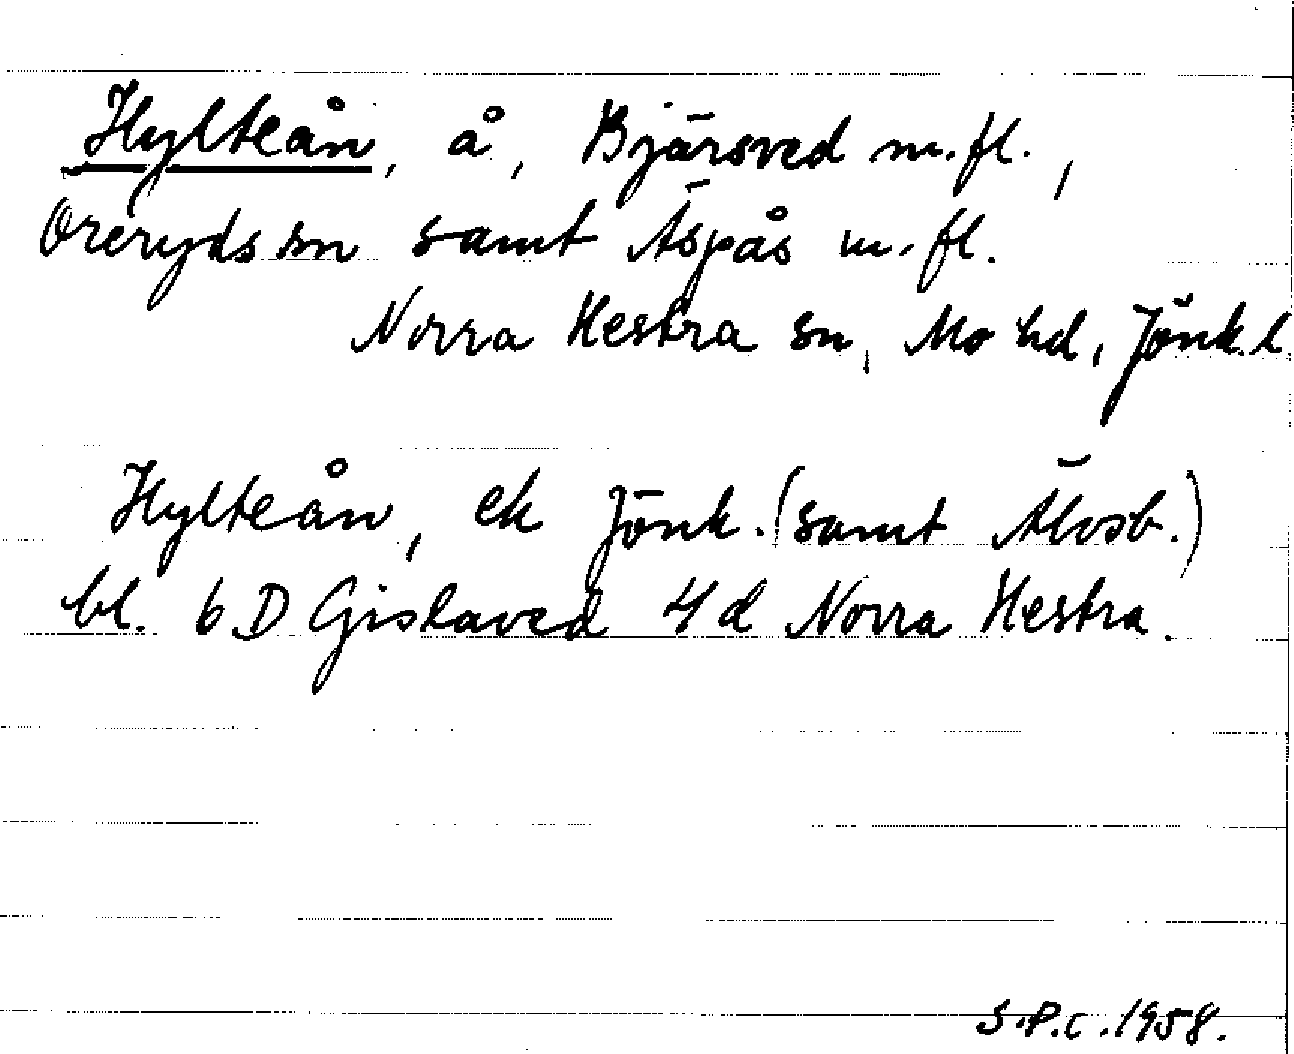 Hylteån, å, Bjärsved m.fl.,
Öreryds sn samt Äspås m.fl.
Norra Hestra sn, Mo hd, Jönk.l
Hylteån, ek Jönk. (samt Älvsb.)
bl. 6 D Gislaved 4 d Norra Hestra.
S.P.C. 1958.